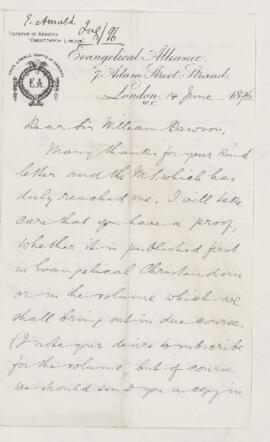 E. Arnold
Evangelical Alliance,
7, Adam Street, Strand,
London, 14 June 1896
W.C.
E A
Dear Sir William Dawson,
Many thanks for your kind
letter and the MS which has
duly reached me. I will take
care that you have a proof,
whether it is published first
in Evangelical Christendom
or in the volume which we
shall bring out in due course.
(I note your desire to subscribe
for the volume, but of course
we should send you a copy in